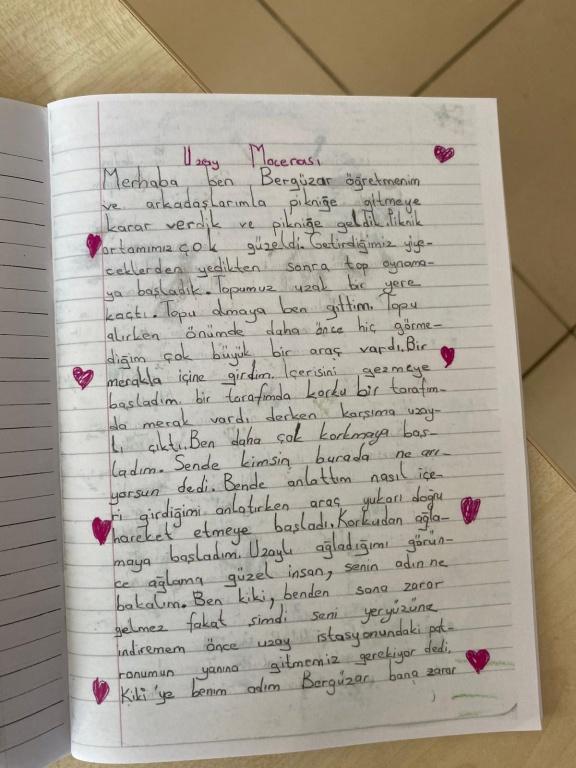 Uzay Macerası
Merhaba ben Bergüzar öğretmenim
ve arkadaşlarımla pikniğe gitmeye
karar verdik ve pikniğe geldik. Piknik
ortamımız çok güzeldi. Getirdiğimiz yiye-
ceklerden yedikten sonra top oynama-
ya başladık. Topumuz uzak bir yere
kaçtı. Topu almaya ben gittim. Topu
alırken önümde daha önce hiç görme-
diğim çok büyük bir araç vardı. Bir
merakla içine girdim. İçerisini gezmeye
başladım bir tarafımda korku bir tarafım-
da merak vardı derken karşıma uzay-
lı çıktı. Ben daha çok korkmaya baş-
ladım. Sende kimsin burada ne arı-
yorsun dedi. Bende anlattım nasıl içe-
ri girdiğimi anlatırken araç yukarı doğu
hareket etmeye başladı. Korkudan ağla-
maya başladım. Uzaylı ağladığımı görün-
ce ağlama güzel insan, senin adın ne
bakalım. Ben kiki, benden sana zarar
gelmez fakat şimdi seni yeryüzüne
indiremem önce uzay istasyonundaki pat-
ronumun yanına gitmemiz gerekiyor dedi.
Kiki'ye benim adım Bergüzar bana zarar